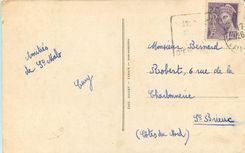 Amitiés
de St Malo
Monsieur Bernard
Robert, 6 rue de la
Charbonnerie
St Brieuc
(Côtes du Nord)